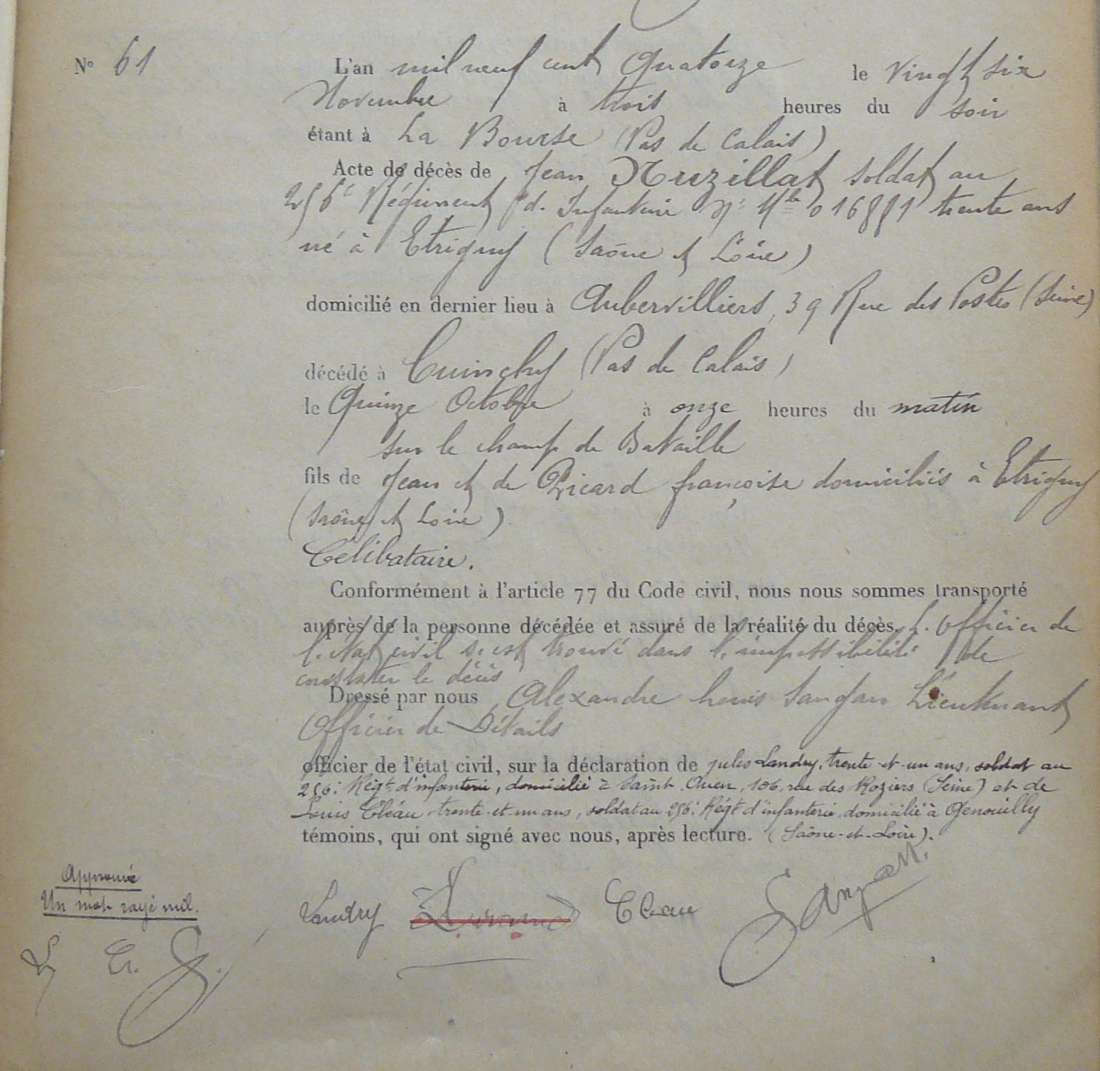 N° 61
L'an mil neuf cent quatorze le vingt six
Novembre à trois heures du soir
étant à La Bourse (Pas de Calais)
Acte de décès de Jean Nuzillat soldat au
256e Régiment d'Infanterie N° Mle 016881 trente ans
né à Etrigny (Saône et Loire)
domicilié en dernier lieu à Aubervilliers, 39 Rue des Postes (Seine)
décédé à Cuinchy (Pas de Calais)
le Quinze Octobre à onze heures du matin
sur le champ de Bataille
fils de Jean et de Picard françoise domiciliés à Etrigny
(Saône et Loire)
Célibataire.
Conformément à l'article 77 du Code civil, nous nous sommes transporté
auprès de la personne décédée et assuré de la réalité du décès. L'officier de
l'état civil s'est trouvé dans l'impossibilité de
constater le décès
Dressé par nous Alexandre Lieutenant
Officier de Détails
officier de l'état civil, sur la déclaration de jules Landry, trente et un ans, soldat au
256e Régt d'infanterie, domicilié à Saint Ouen, 106, rue des Roziers (Seine) et de
Louis Cléau trente et un ans, soldat au 256e Régt d'infanterie domicilié à Genouilly
témoins, qui ont signé avec nous, après lecture. (Saône-et-Loire).
Approuvé
Un mot rayé nul.
Landry Cléau